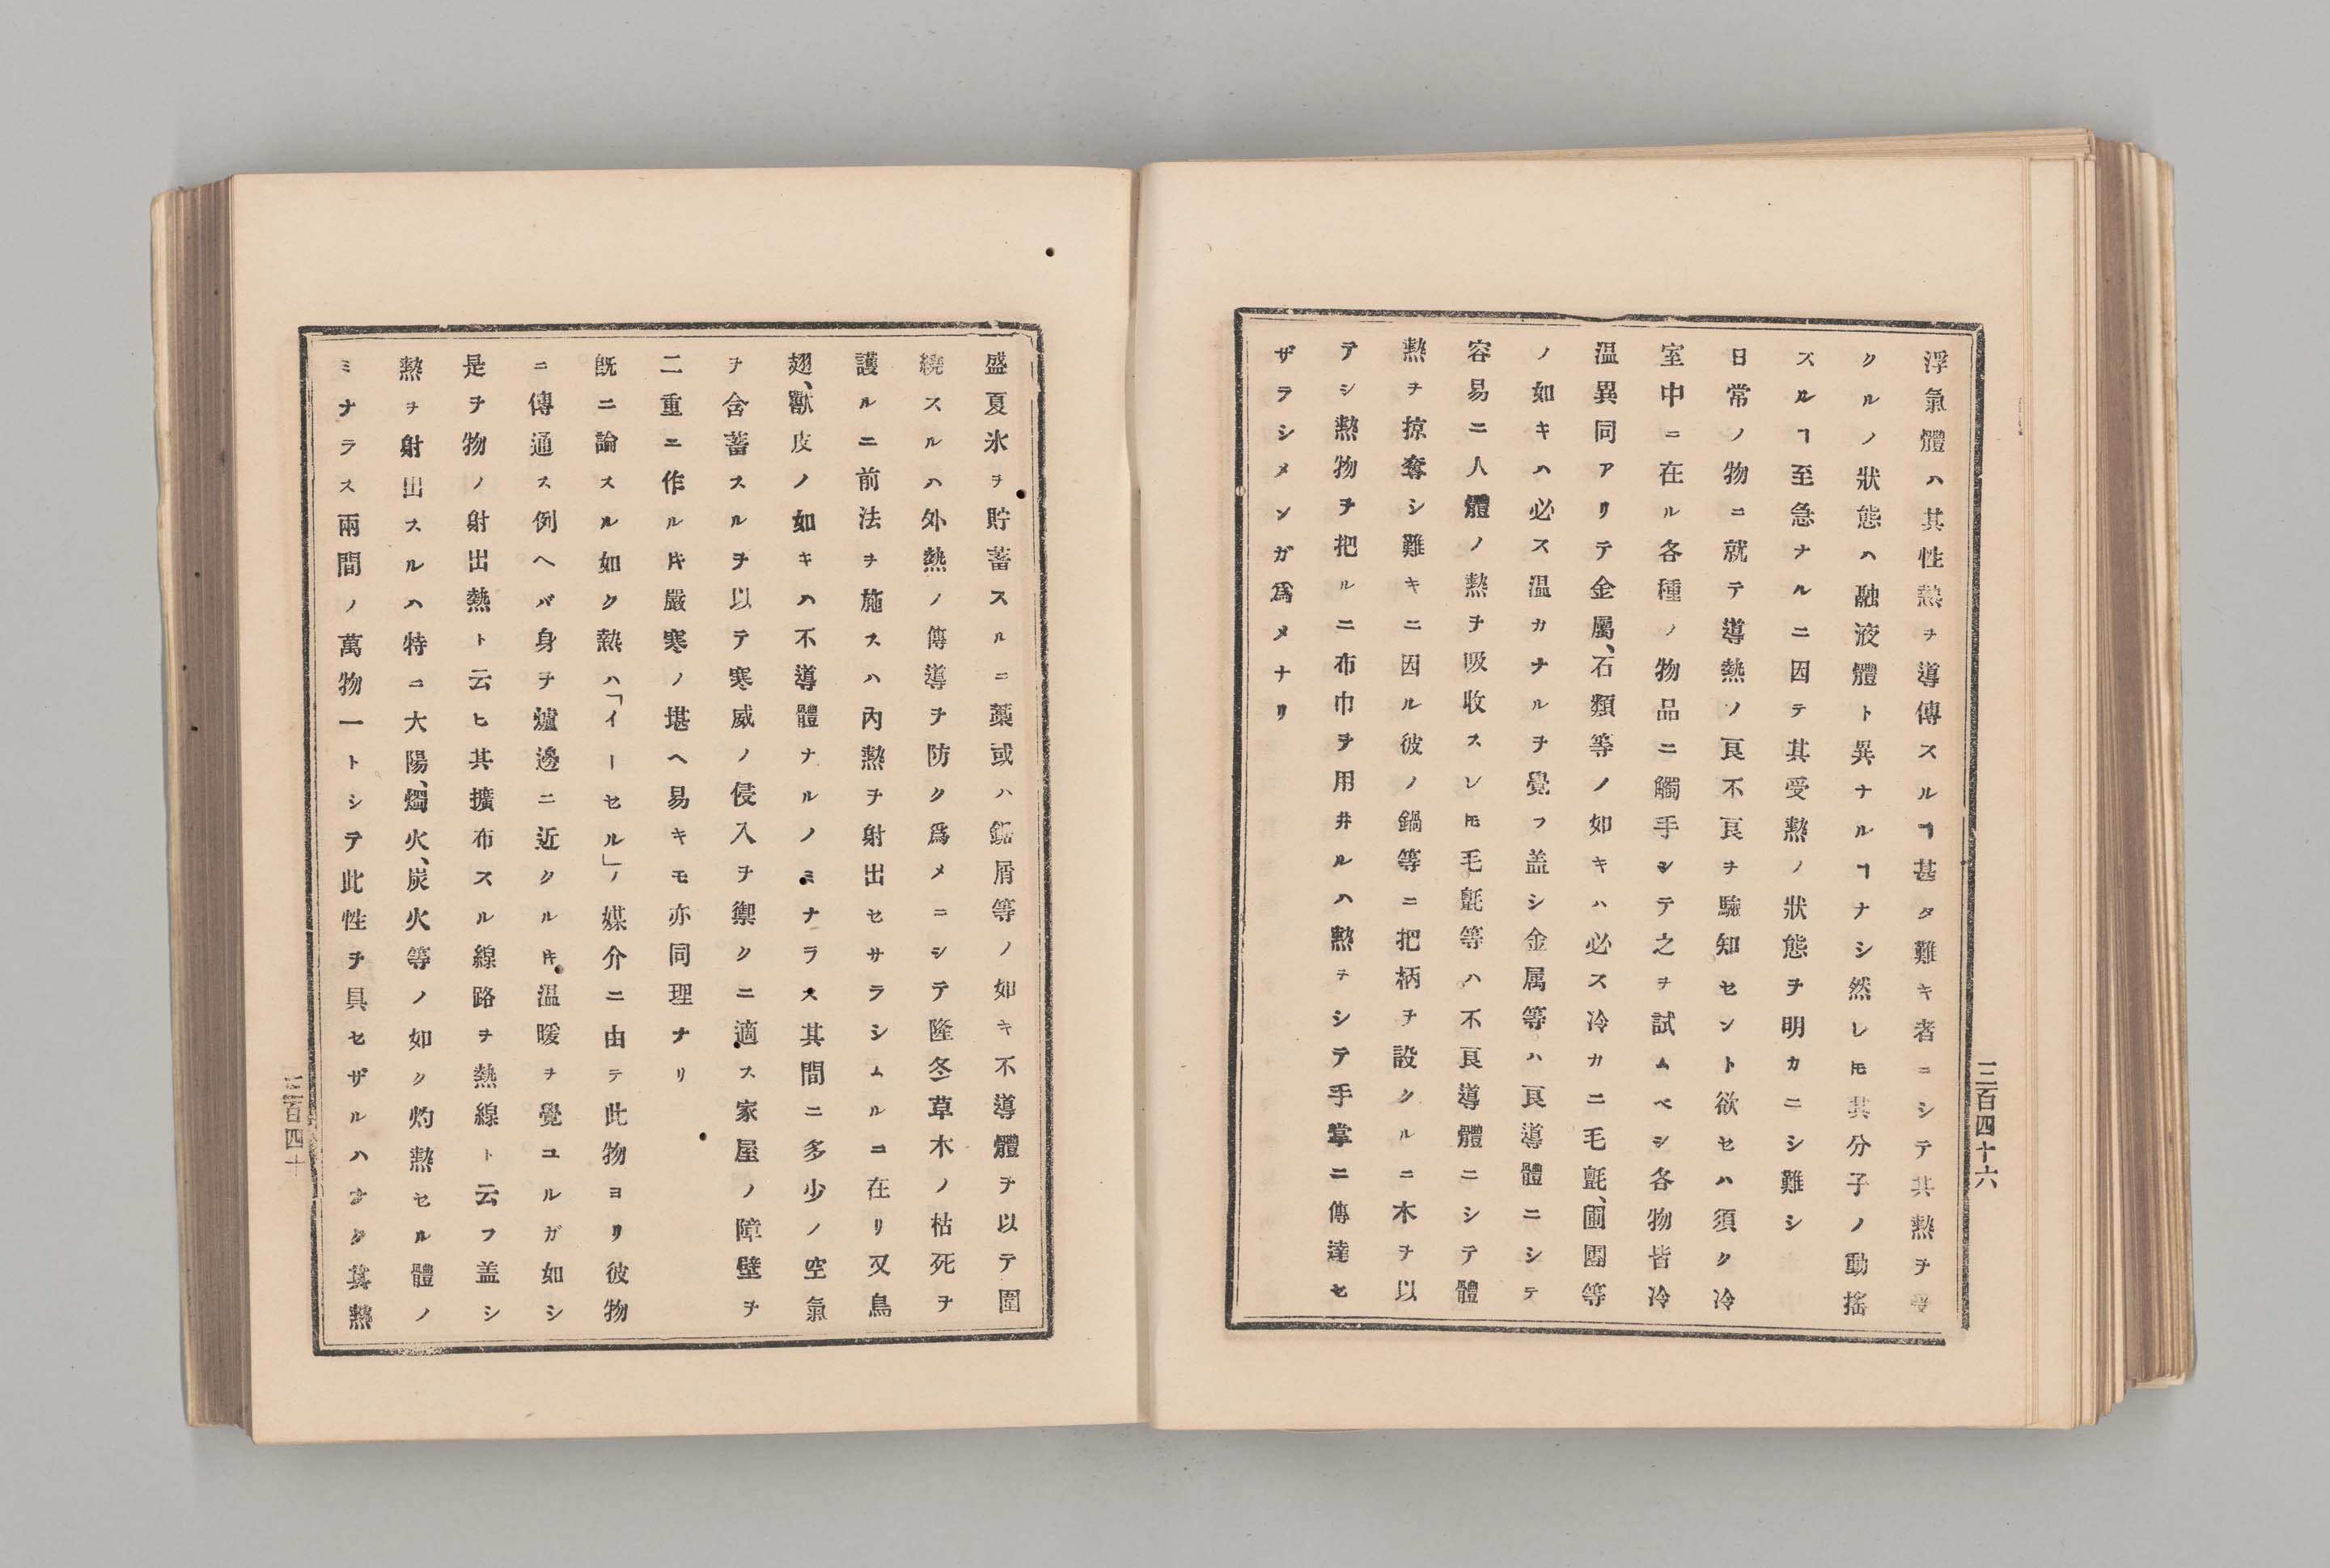 浮氣體ハ其性熱ヲ導傳スルヿ甚タ難キ者ニシテ其熱ヲ受
クルノ狀態ハ融液體ト異ナルヿナシ然レ𪜈其分子ノ動搖
スルヿ至急ナルニ因テ其受熱ノ狀態ヲ明カニシ難シ
日常ノ物ニ就テ導熱ノ良不良ヲ驗知セント欲セハ須ク冷
室中ニ在ル各種ノ物品ニ觸手シテ之ヲ試ムベシ各物皆冷
温異同アリテ金屬、石類等ノ如キハ必ス冷カニ毛氈、圃團等
ノ如キハ必ス温カナルヲ覺フ盖シ金属等ハ良導體ニシテ
容易ニ人體ノ熱ヲ吸收スレ𪜈毛氈等ハ不良導體ニシテ體
熱ヲ掠奪シ難キニ因ル彼ノ鍋等ニ把柄ヲ設クルニ木ヲ以
テシ熱物ヲ把ルニ布巾ヲ用井ルハ熱ヲシテ手掌ニ傳達セ
ザラシメンガ爲メナリ
三百四十六
盛夏氷ヲ貯蓄スルニ藁或ハ鋸屑等ノ如キ不導體ヲ以テ圍
繞スルハ外熱ノ傳導ヲ防ク爲メニシテ隆冬草木ノ枯死ヲ
護ルニ前法ヲ施スハ內熱ヲ射出セサラシムルコ在リ又鳥
翅、獸皮ノ如キハ不導體ナルノミナラス其間ニ多少ノ空氣
ヲ含蓄スルヲ以テ寒威ノ侵入ヲ禦クニ適ス家屋ノ障壁ヲ
二重ニ作ル𪜈嚴寒ノ堪ヘ易キモ亦同理ナリ
既ニ論スル如ク熱ハ「イーセル」ノ媒介ニ由テ此物ヨリ彼物
ニ傳通ス例ヘバ身ヲ爐邊ニ近クル𪜈温暖ヲ覺ユルガ如シ
是ヲ物ノ射出熱ト云ヒ其擴布スル線路ヲ熱線ト云フ盖シ
熱ヲ射出スルハ特ニ大陽、燭火、炭火等ノ如ク灼熱セル體ノ
ミナラス兩間ノ萬物一トシテ此性ヲ具セザルハナク其熱
三百四十